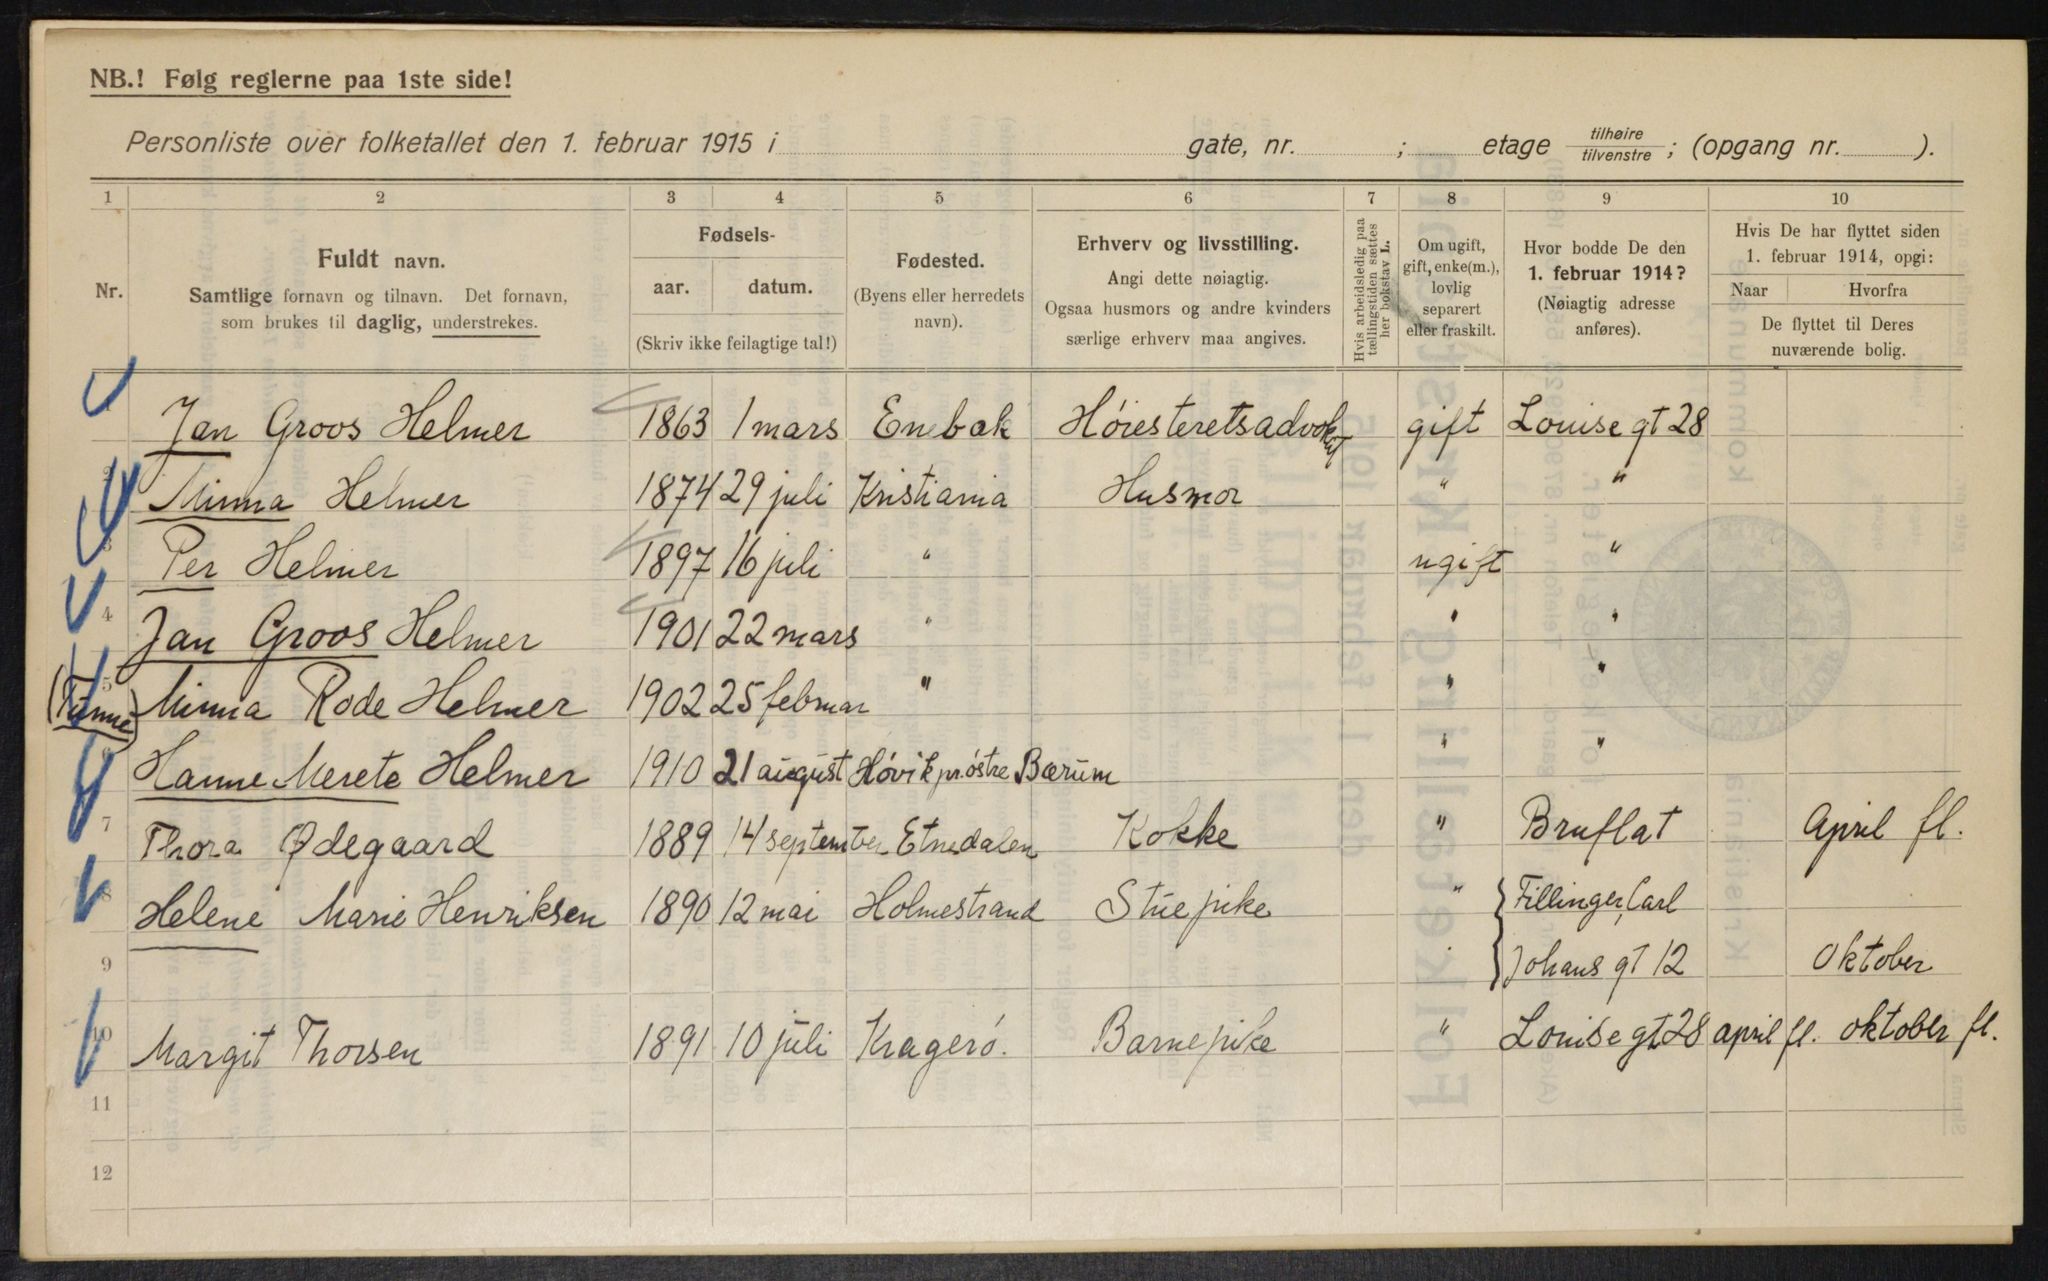 NB.! Følg reglerne paa 1ste side!
Personliste over folketallet den 1. februar 1915 i gate, nr. ; etage tilhøire tilvenstre ; (opgang nr. ).
1 2 3 4 5 6 7 8 9 10
Nr.
Fuldt navn.
Samtlige fornavn og tilnavn. Det fornavn,
som brukes til daglig, understrekes.
Fødsels-
aar. datum.
(Skriv ikke feilagtige tal!)
Fødested.
(Byens eller herredets
navn).
Erhverv og livsstilling.
Angi dette nøiagtig.
Ogsaa husmors og andre kvinders
særlige erhverv maa angives.
Hvis arbeidsledig paa
tællingstiden sættes
her bokstav L.
Om ugift,
gift, enke(m.),
lovlig
separert
eller fraskilt.
Hvor bodde De den
1. februar 1914?
(Nøiagtig adresse
anføres).
Hvis De har flyttet siden
1. februar 1914, opgi:
Naar Hvorfra
De flyttet til Deres
nuværende bolig.
1 Jan Groos Helmer 1863 1 mars Enebak Høiesteretsadvokat gift Louise gt 28
2 Minna Helmer 1874 29 juli Kristiania Husmor " "
3 Per Helmer 1897 16 juli " ugift "
4 Jan Groos Helmer 1901 22 mars " " "
5 Minna Rode Helmer 1902 25 februar " " "
6 Hanne Merete Helmer 1910 21 august Høvik pr. østre Bærum " "
7 Thora Ødegaard 1889 14 september Etnedalen Kokke " Bruflat April fl.
8 Helene Marie Henriksen 1890 12 mai Holmestrand Stuepike " Fillinger, Carl
9 " Johans gt 12 Oktober
10 Margit Thorsen 1891 10 juli Kragerø. Barnepike " Louise gt 28 april fl. oktober fl.
11
12